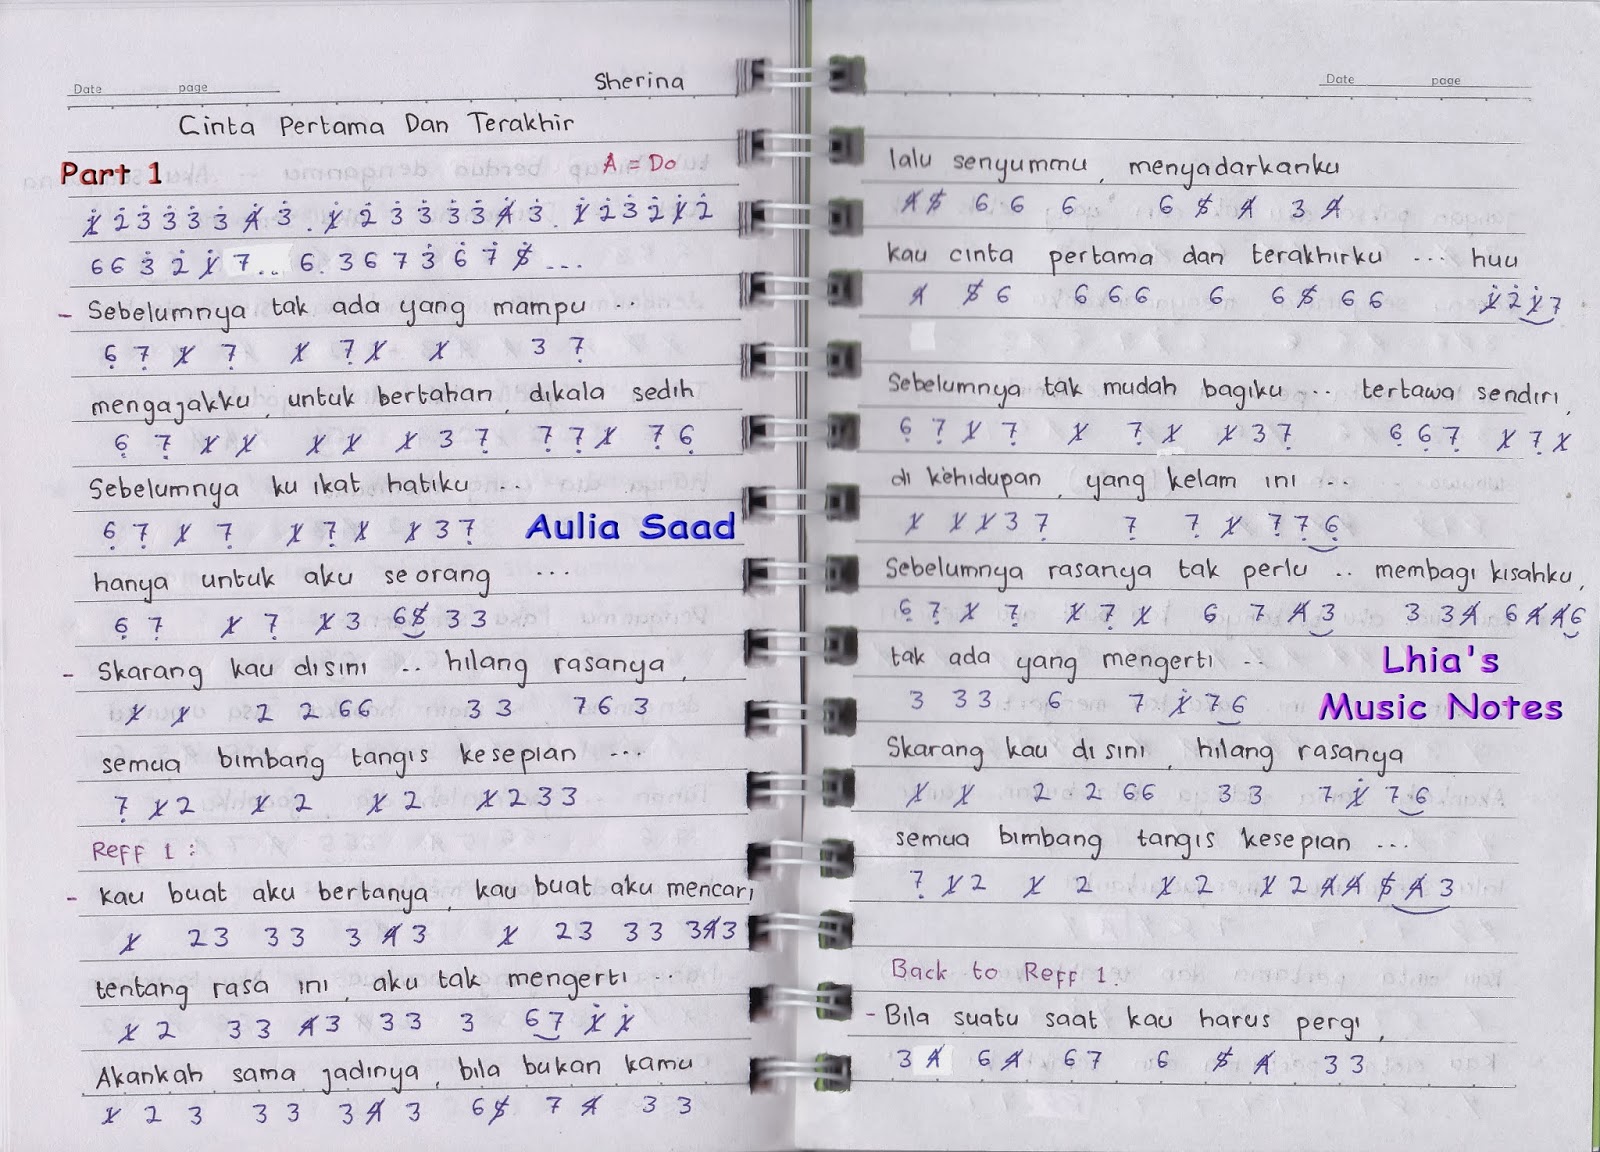 Date page
Sherina
Cinta Pertama Dan Terakhir
Part 1
A = Do
1 2 3 3 3 3 4 3 . 1 2 3 3 3 3 4 3 . 1 2 3 2 1 2
6 6 3 2 1 7 .. 6 . 3 6 7 3 6 7 5 ...
- Sebelumnya tak ada yang mampu ...
6 7 1 7 1 7 1 1 3 7
mengajakku, untuk bertahan, dikala sedih
6 7 1 1 1 1 1 3 7 7 7 1 7 6
Sebelumnya ku ikat hatiku ...
6 7 1 7 1 7 1 1 3 7
Aulia Saad
hanya untuk aku seorang ...
6 7 1 7 1 3 6 5 3 3
- Skarang kau disini .. hilang rasanya,
1 1 2 2 6 6 3 3 7 6 3
semua bimbang tangis kesepian ...
7 1 2 1 2 1 2 1 2 3 3
Reff 1 :
- kau buat aku bertanya, kau buat aku mencari
1 2 3 3 3 3 4 3 1 2 3 3 3 3 4 3
tentang rasa ini, aku tak mengerti ...
1 2 3 3 4 3 3 3 3 6 7 1 1
Akankah sama jadinya, bila bukan kamu
1 2 3 3 3 3 4 3 6 5 7 4 3 3
Date page
lalu senyummu, menyadarkanku
4 5 6 6 6 6 5 4 3 4
kau cinta pertama dan terakhirku ... huu
4 5 6 6 6 6 6 6 5 6 6 1 2 1 7
Sebelumnya tak mudah bagiku ... tertawa sendiri,
6 7 1 7 1 7 1 1 3 7 6 6 7 1 7 1
di kehidupan, yang kelam ini ...
1 1 1 3 7 7 7 1 7 7 6
Sebelumnya rasanya tak perlu .. membagi kisahku,
6 7 1 7 1 7 1 6 7 4 3 3 3 4 6 4 4 6
tak ada yang mengerti ..
3 3 3 6 7 1 7 6
Lhia's
Music Notes
Skarang kau di sini, hilang rasanya
1 1 2 2 6 6 3 3 7 1 7 6
semua bimbang tangis kesepian ...
7 1 2 1 2 1 2 1 2 4 4 5 4 3
Back to Reff 1.
- Bila suatu saat kau harus pergi,
3 4 6 4 6 7 6 5 4 3 3